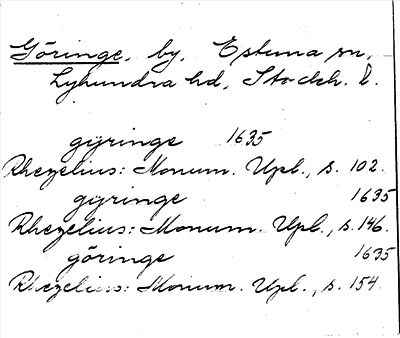 Göringe, by, Estuna sn,
Lyhundra hd, Stockh. l.
gÿringe 1635
Rhezelius: Monum. Upl., s. 102.
gÿringe 1635
Rhezelius: Monum. Upl., s. 146.
göringe 1635
Rhezelius: Monum. Upl., s. 154.